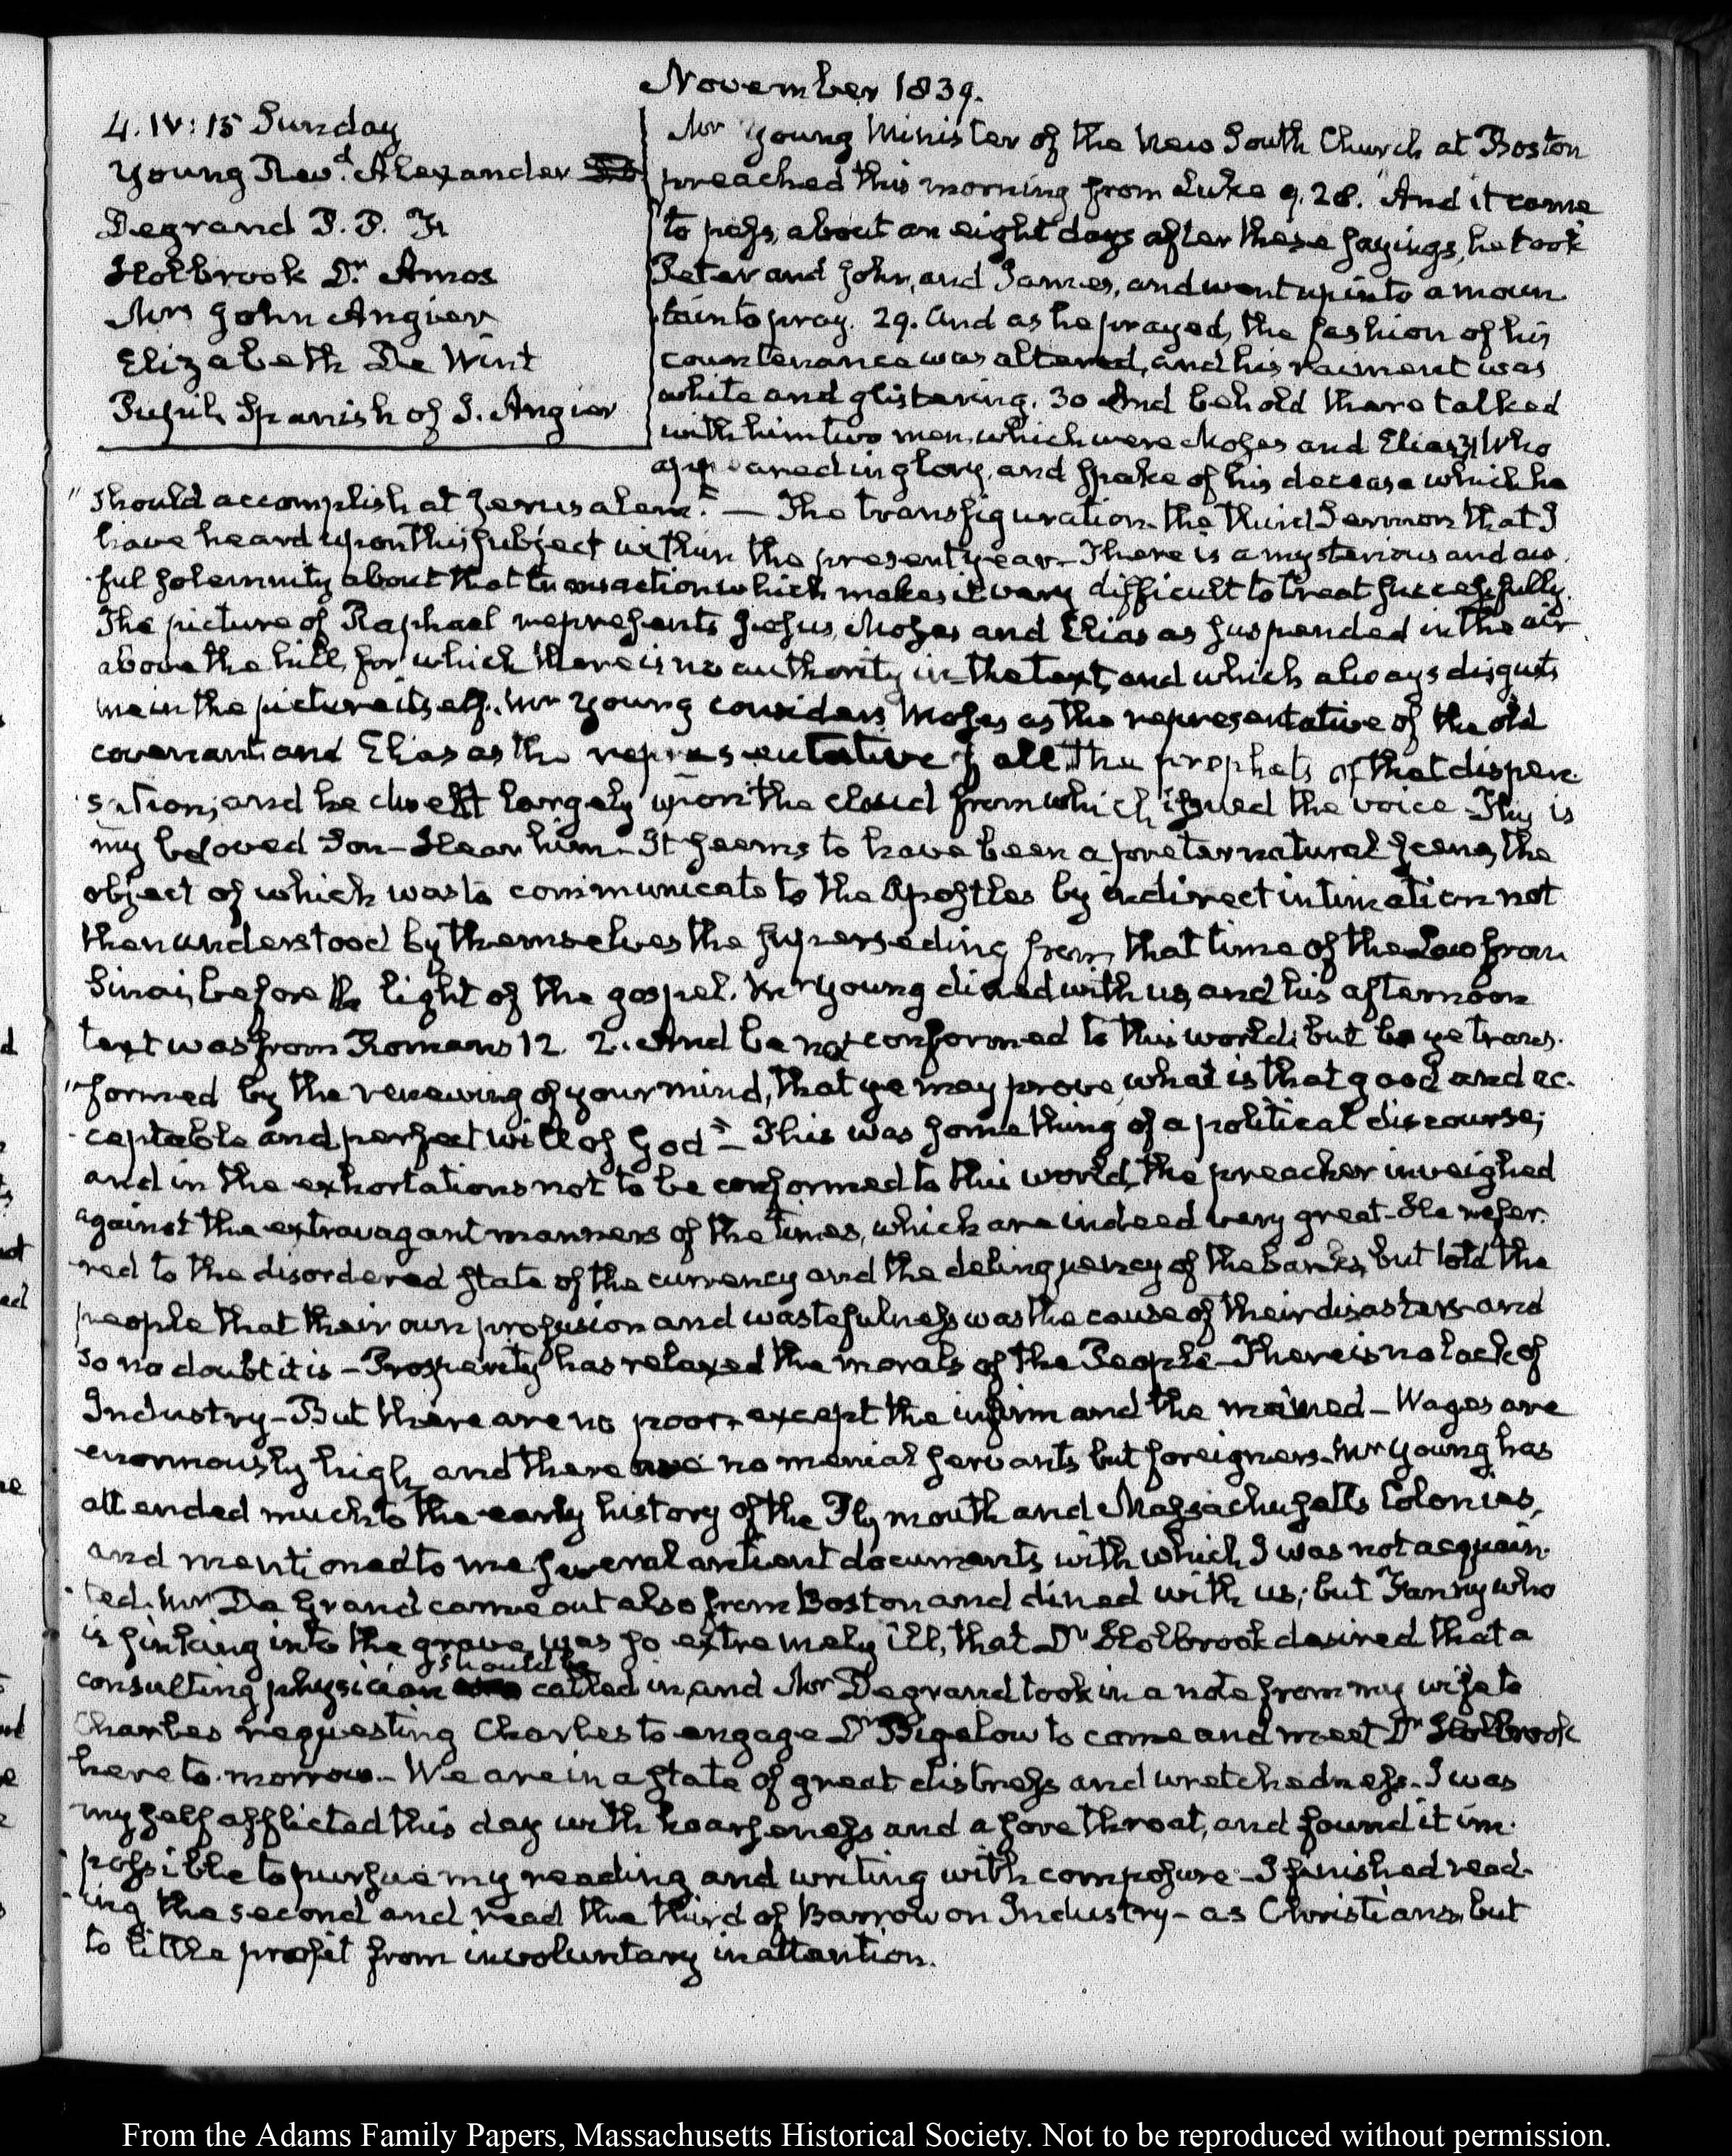 November 1839.
4. IV: 15 Sunday
Young Revd. Alexander
Degrand P. P. F.
Holbrook Dr. Amos
Mrs John Angier
Elizabeth De Wint
Pupil Spanish of J. Angier
Mr Young Minister of the New South Church at Boston
preached this morning from Luke 9. 28. "And it came
"to pass, about an eight days after these sayings, he took
Peter and John, and James, and went up into a moun-
-tain to pray. 29. And as he prayed, the fashion of his
countenance was altered, and his raiment was
white and glistering. 30 And behold there talked
with him two men, which were Moses and Elias, 31 Who
appeared in glory, and spake of his decease which he
"should accomplish at Jerusalem." — The transfiguration—the third Sermon that I
have heard upon this subject within the present year—There is a mysterious and aw-
-ful solemnity about that transaction which makes it very difficult to treat successfully.
The picture of Raphael represents Jesus, Moses and Elias as suspended in the air
above the hill, for which there is no authority in the text, and which always disgusts
me in the picture itself. Mr Young considers Moses as the representative of the old
covenant and Elias as the representative of all the prophets of that dispen-
-sation; and he dwelt largely upon the cloud from which issued the voice—This is
my beloved Son—Hear him—It seems to have been a preternatural scene, the
object of which was to communicate to the Apostles by indirect intimation not
then understood by themselves the superseding from that time of the Law from
Sinai, before the light of the gospel. Mr Young dined with us, and his afternoon
text was from Romans 12. 2. And be not conformed to this world: but be ye trans-
"formed by the renewing of your mind, that ye may prove, what is that good and ac-
-ceptable and perfect will of God"—This was something of a political discourse;
and in the exhortations not to be conformed to this world, the preacher inveighed
against the extravagant manners of the times, which are indeed very great—He refer-
-red to the disordered state of the currency and the delinquency of the banks, but told the
people that their own profusion and wastefulness was the cause of their disasters—and
so no doubt it is—Prosperity has relaxed the morals of the People—There is no lack of
Industry—But there are no poor, except the infirm and the maimed—Wages are
enormously high, and there are no menial servants but foreigners. Mr Young has
attended much to the early history of the Plymouth and Massachusetts Colonies,
and mentioned to me several antient documents with which I was not acquain-
-ted. Mr De Grand came out also from Boston and dined with us; but Fanny who
is sinking into the grave, was so extremely ill, that Dr Holbrook desired that a
consulting physician should be called in, and Mr Degrand took in a note from my wife to
Charles requesting Charles to engage Dr Bigelow to come and meet Dr Holbrook
here to-morrow—We are in a state of great distress and wretchedness. I was
myself afflicted this day with hoarseness and a sore throat, and found it im-
-possible to pursue my reading and writing with composure—I finished read-
-ing the second and read the third of Barrow on Industry—as Christians, but
to little profit from involuntary inattention.
From the Adams Family Papers, Massachusetts Historical Society. Not to be reproduced without permission.